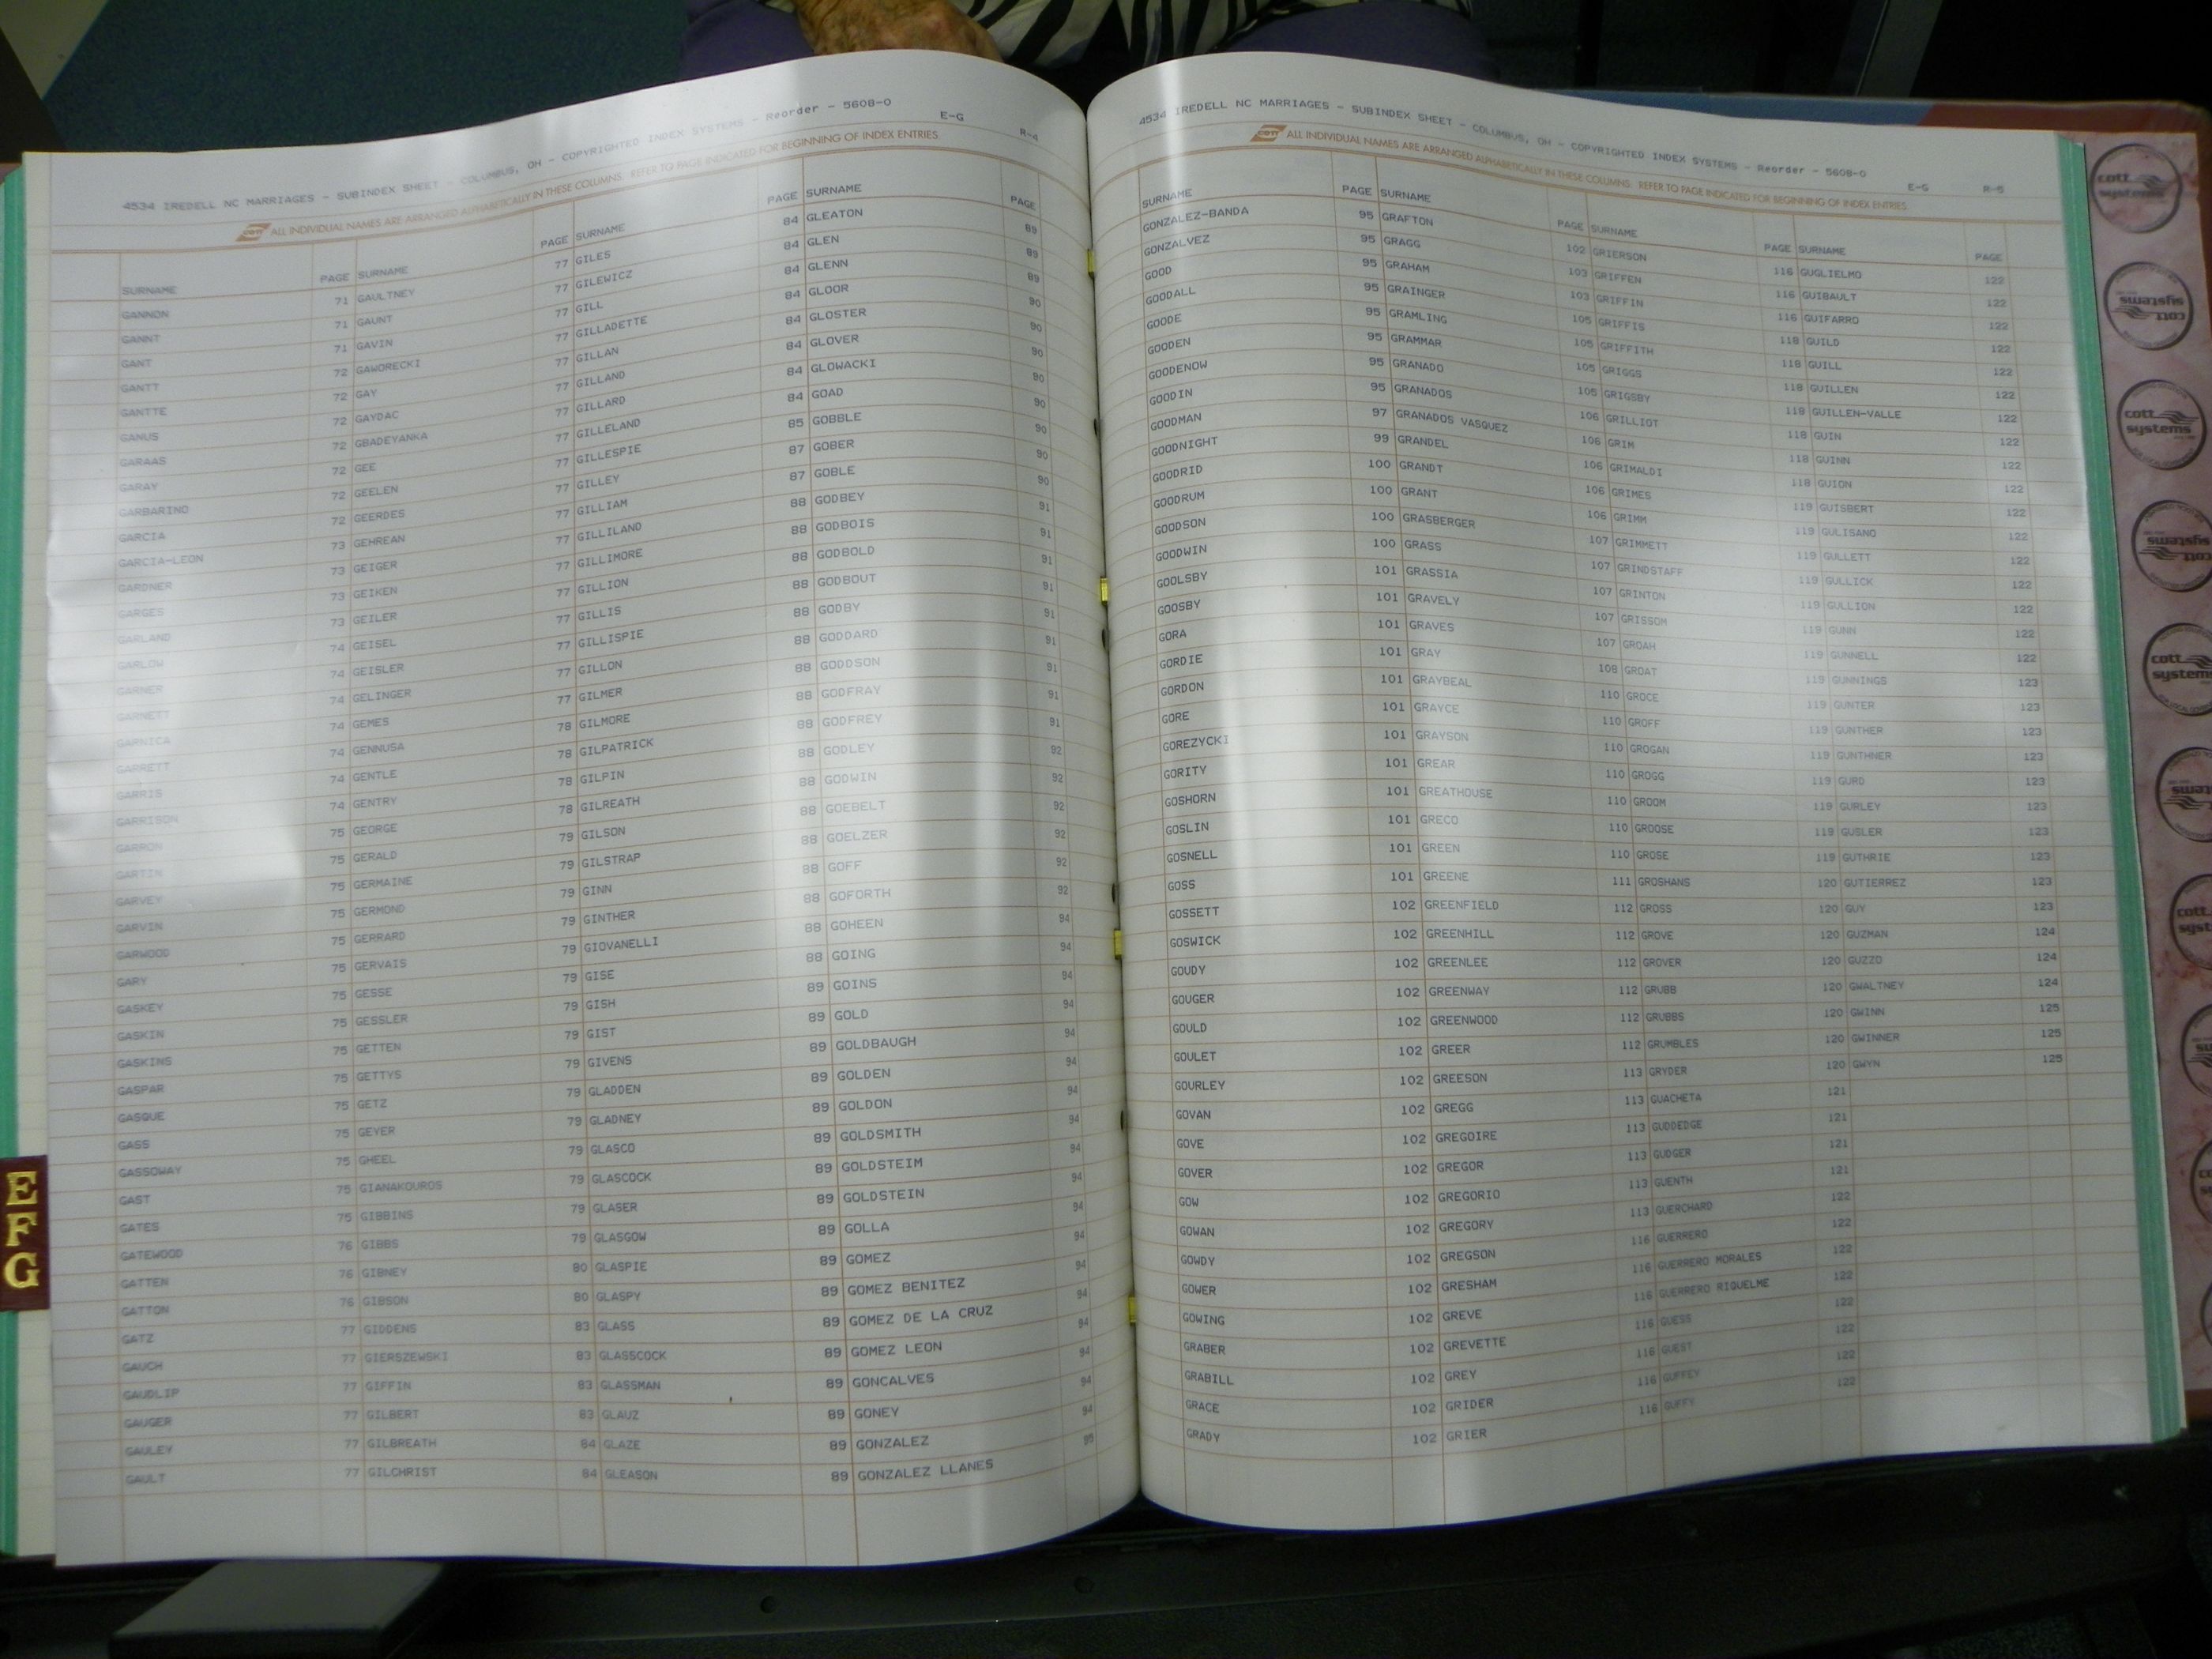 4534 IREDELL NC MARRIAGES - SUBINDEX SHEET - COLUMBUS, OH - COPYRIGHTED INDEX SYSTEMS - Reorder - 5608-0 E-G R-4
cott ALL INDIVIDUAL NAMES ARE ARRANGED ALPHABETICALLY IN THESE COLUMNS. REFER TO PAGE INDICATED FOR BEGINNING OF INDEX ENTRIES
SURNAME PAGE SURNAME PAGE SURNAME PAGE SURNAME PAGE
GANNON 71 GAULTNEY 77 GILES 84 GLEATON 89
GANNT 71 GAUNT 77 GILEWICZ 84 GLEN 89
GANT 71 GAVIN 77 GILL 84 GLENN 89
GANTT 72 GAWORECKI 77 GILLADETTE 84 GLOOR 90
GANTTE 72 GAY 77 GILLAN 84 GLOSTER 90
GANUS 72 GAYDAC 77 GILLAND 84 GLOVER 90
GARAAS 72 GBADEYANKA 77 GILLARD 84 GLOWACKI 90
GARAY 72 GEE 77 GILLELAND 84 GOAD 90
GARBARINO 72 GEELEN 77 GILLESPIE 85 GOBBLE 90
GARCIA 72 GEERDES 77 GILLEY 87 GOBER 90
GARCIA-LEON 73 GEHREAN 77 GILLIAM 87 GOBLE 90
GARDNER 73 GEIGER 77 GILLILAND 88 GODBEY 91
GARGES 73 GEIKEN 77 GILLIMORE 88 GODBOIS 91
GARLAND 73 GEILER 77 GILLION 88 GODBOLD 91
GARLOW 74 GEISEL 77 GILLIS 88 GODBOUT 91
GARNER 74 GEISLER 77 GILLISPIE 88 GODBY 91
GARNETT 74 GELINGER 77 GILLON 88 GODDARD 91
GARNICA 74 GEMES 77 GILMER 88 GODDSON 91
GARRETT 74 GENNUSA 78 GILMORE 88 GODFRAY 91
GARRIS 74 GENTLE 78 GILPATRICK 88 GODFREY 91
GARRISON 74 GENTRY 78 GILPIN 88 GODLEY 92
GARRON 75 GEORGE 78 GILREATH 88 GODWIN 92
GARTIN 75 GERALD 79 GILSON 88 GOEBELT 92
GARVEY 75 GERMAINE 79 GILSTRAP 88 GOELZER 92
GARVIN 75 GERMOND 79 GINN 88 GOFF 92
GARWOOD 75 GERRARD 79 GINTHER 88 GOFORTH 92
GARY 75 GERVAIS 79 GIOVANELLI 88 GOHEEN 94
GASKEY 75 GESSE 79 GISE 88 GOING 94
GASKIN 75 GESSLER 79 GISH 89 GOINS 94
GASKINS 75 GETTEN 79 GIST 89 GOLD 94
GASPAR 75 GETTYS 79 GIVENS 89 GOLDBAUGH 94
GASQUE 75 GETZ 79 GLADDEN 89 GOLDEN 94
GASS 75 GEYER 79 GLADNEY 89 GOLDON 94
GASSOWAY 75 GHEEL 79 GLASCO 89 GOLDSMITH 94
GAST 75 GIANAKOUROS 79 GLASCOCK 89 GOLDSTEIM 94
GATES 75 GIBBINS 79 GLASER 89 GOLDSTEIN 94
GATEWOOD 76 GIBBS 79 GLASGOW 89 GOLLA 94
GATTEN 76 GIBNEY 80 GLASPIE 89 GOMEZ 94
GATTON 76 GIBSON 80 GLASPY 89 GOMEZ BENITEZ 94
GATZ 77 GIDDENS 83 GLASS 89 GOMEZ DE LA CRUZ 94
GAUCH 77 GIERSZEWSKI 83 GLASSCOCK 89 GOMEZ LEON 94
GAUDLIP 77 GIFFIN 83 GLASSMAN 89 GONCALVES 94
GAUGER 77 GILBERT 83 GLAUZ 89 GONEY 94
GAULEY 77 GILBREATH 84 GLAZE 89 GONZALEZ 94
GAULT 77 GILCHRIST 84 GLEASON 89 GONZALEZ LLANES 95
4534 IREDELL NC MARRIAGES - SUBINDEX SHEET - COLUMBUS, OH - COPYRIGHTED INDEX SYSTEMS - Reorder - 5608-0 E-G R-5
cott ALL INDIVIDUAL NAMES ARE ARRANGED ALPHABETICALLY IN THESE COLUMNS. REFER TO PAGE INDICATED FOR BEGINNING OF INDEX ENTRIES
SURNAME PAGE SURNAME PAGE SURNAME PAGE SURNAME PAGE
GONZALEZ-BANDA 95 GRAFTON 102 GRIERSON 116 GUGLIELMO 122
GONZALVEZ 95 GRAGG 103 GRIFFEN 116 GUIBAULT 122
GOOD 95 GRAHAM 103 GRIFFIN 116 GUIFARRO 122
GOODALL 95 GRAINGER 105 GRIFFIS 118 GUILD 122
GOODE 95 GRAMLING 105 GRIFFITH 118 GUILL 122
GOODEN 95 GRAMMAR 105 GRIGGS 118 GUILLEN 122
GOODENOW 95 GRANADO 105 GRIGSBY 118 GUILLEN-VALLE 122
GOODIN 95 GRANADOS 106 GRILLIOT 118 GUIN 122
GOODMAN 97 GRANADOS VASQUEZ 106 GRIM 118 GUINN 122
GOODNIGHT 99 GRANDEL 106 GRIMALDI 118 GUION 122
GOODRID 100 GRANDT 106 GRIMES 119 GUISBERT 122
GOODRUM 100 GRANT 106 GRIMM 119 GULISANO 122
GOODSON 100 GRASBERGER 107 GRIMMETT 119 GULLETT 122
GOODWIN 100 GRASS 107 GRINDSTAFF 119 GULLICK 122
GOOLSBY 101 GRASSIA 107 GRINTON 119 GULLION 122
GOOSBY 101 GRAVELY 107 GRISSOM 119 GUNN 122
GORA 101 GRAVES 107 GROAH 119 GUNNELL 122
GORDIE 101 GRAY 108 GROAT 119 GUNNINGS 123
GORDON 101 GRAYBEAL 110 GROCE 119 GUNTER 123
GORE 101 GRAYCE 110 GROFF 119 GUNTHER 123
GOREZYCKI 101 GRAYSON 110 GROGAN 119 GUNTHNER 123
GORITY 101 GREAR 110 GROGG 119 GURD 123
GOSHORN 101 GREATHOUSE 110 GROOM 119 GURLEY 123
GOSLIN 101 GRECO 110 GROOSE 119 GUSLER 123
GOSNELL 101 GREEN 110 GROSE 119 GUTHRIE 123
GOSS 101 GREENE 111 GROSHANS 120 GUTIERREZ 123
GOSSETT 102 GREENFIELD 112 GROSS 120 GUY 123
GOSWICK 102 GREENHILL 112 GROVE 120 GUZMAN 124
GOUDY 102 GREENLEE 112 GROVER 120 GUZZO 124
GOUGER 102 GREENWAY 112 GRUBB 120 GWALTNEY 124
GOULD 102 GREENWOOD 112 GRUBBS 120 GWINN 125
GOULET 102 GREER 112 GRUMBLES 120 GWINNER 125
GOURLEY 102 GREESON 113 GRYDER 120 GWYN 125
GOVAN 102 GREGG 113 GUACHETA 121
GOVE 102 GREGOIRE 113 GUDDEDGE 121
GOVER 102 GREGOR 113 GUDGER 121
GOW 102 GREGORIO 113 GUENTH 121
GOWAN 102 GREGORY 113 GUERCHARD 122
GOWDY 102 GREGSON 116 GUERRERO 122
GOWER 102 GRESHAM 116 GUERRERO MORALES 122
GOWING 102 GREVE 116 GUERRERO RIQUELME 122
GRABER 102 GREVETTE 116 GUESS 122
GRABILL 102 GREY 116 GUEST 122
GRACE 102 GRIDER 116 GUFFEY 122
GRADY 102 GRIER 116 GUFFY 122
E
F
G
cott systems
cott systems
cott systems
cott systems
cott systems